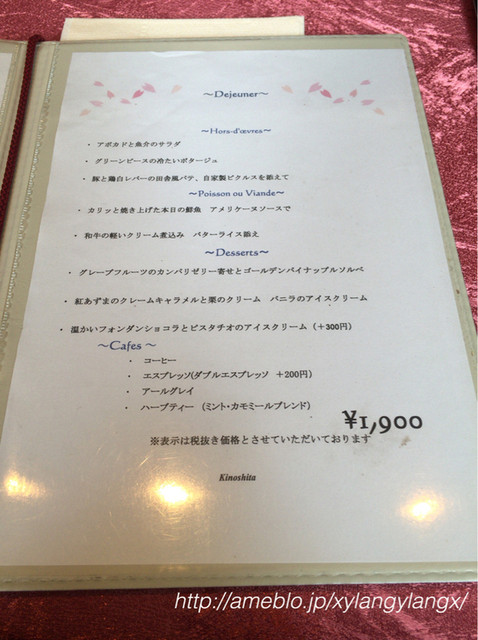 ～Dejeuner～
～Hors-d'œvres～
・ アボカドと魚介のサラダ
・ グリーンピースの冷たいポタージュ
・ 豚と鶏白レバーの田舎風パテ、自家製ピクルスを添えて
～Poisson ou Viande～
・ カリッと焼き上げた本日の鮮魚 アメリケーヌソースで
・ 和牛の軽いクリーム煮込み バターライス添え
～Desserts～
・ グレープフルーツのカンパリゼリー寄せとゴールデンパイナップルソルベ
・ 紅あずまのクレームキャラメルと栗のクリーム バニラのアイスクリーム
・ 温かいフォンダンショコラとピスタチオのアイスクリーム（＋300円）
～Cafes ～
・ コーヒー
・ エスプレッソ(ダブルエスプレッソ ＋200円)
・ アールグレイ
・ ハーブティー （ミント・カモミールブレンド）
¥1,900
※表示は税抜き価格とさせていただいております
Kinoshita
http://ameblo.jp/xylangylangx/